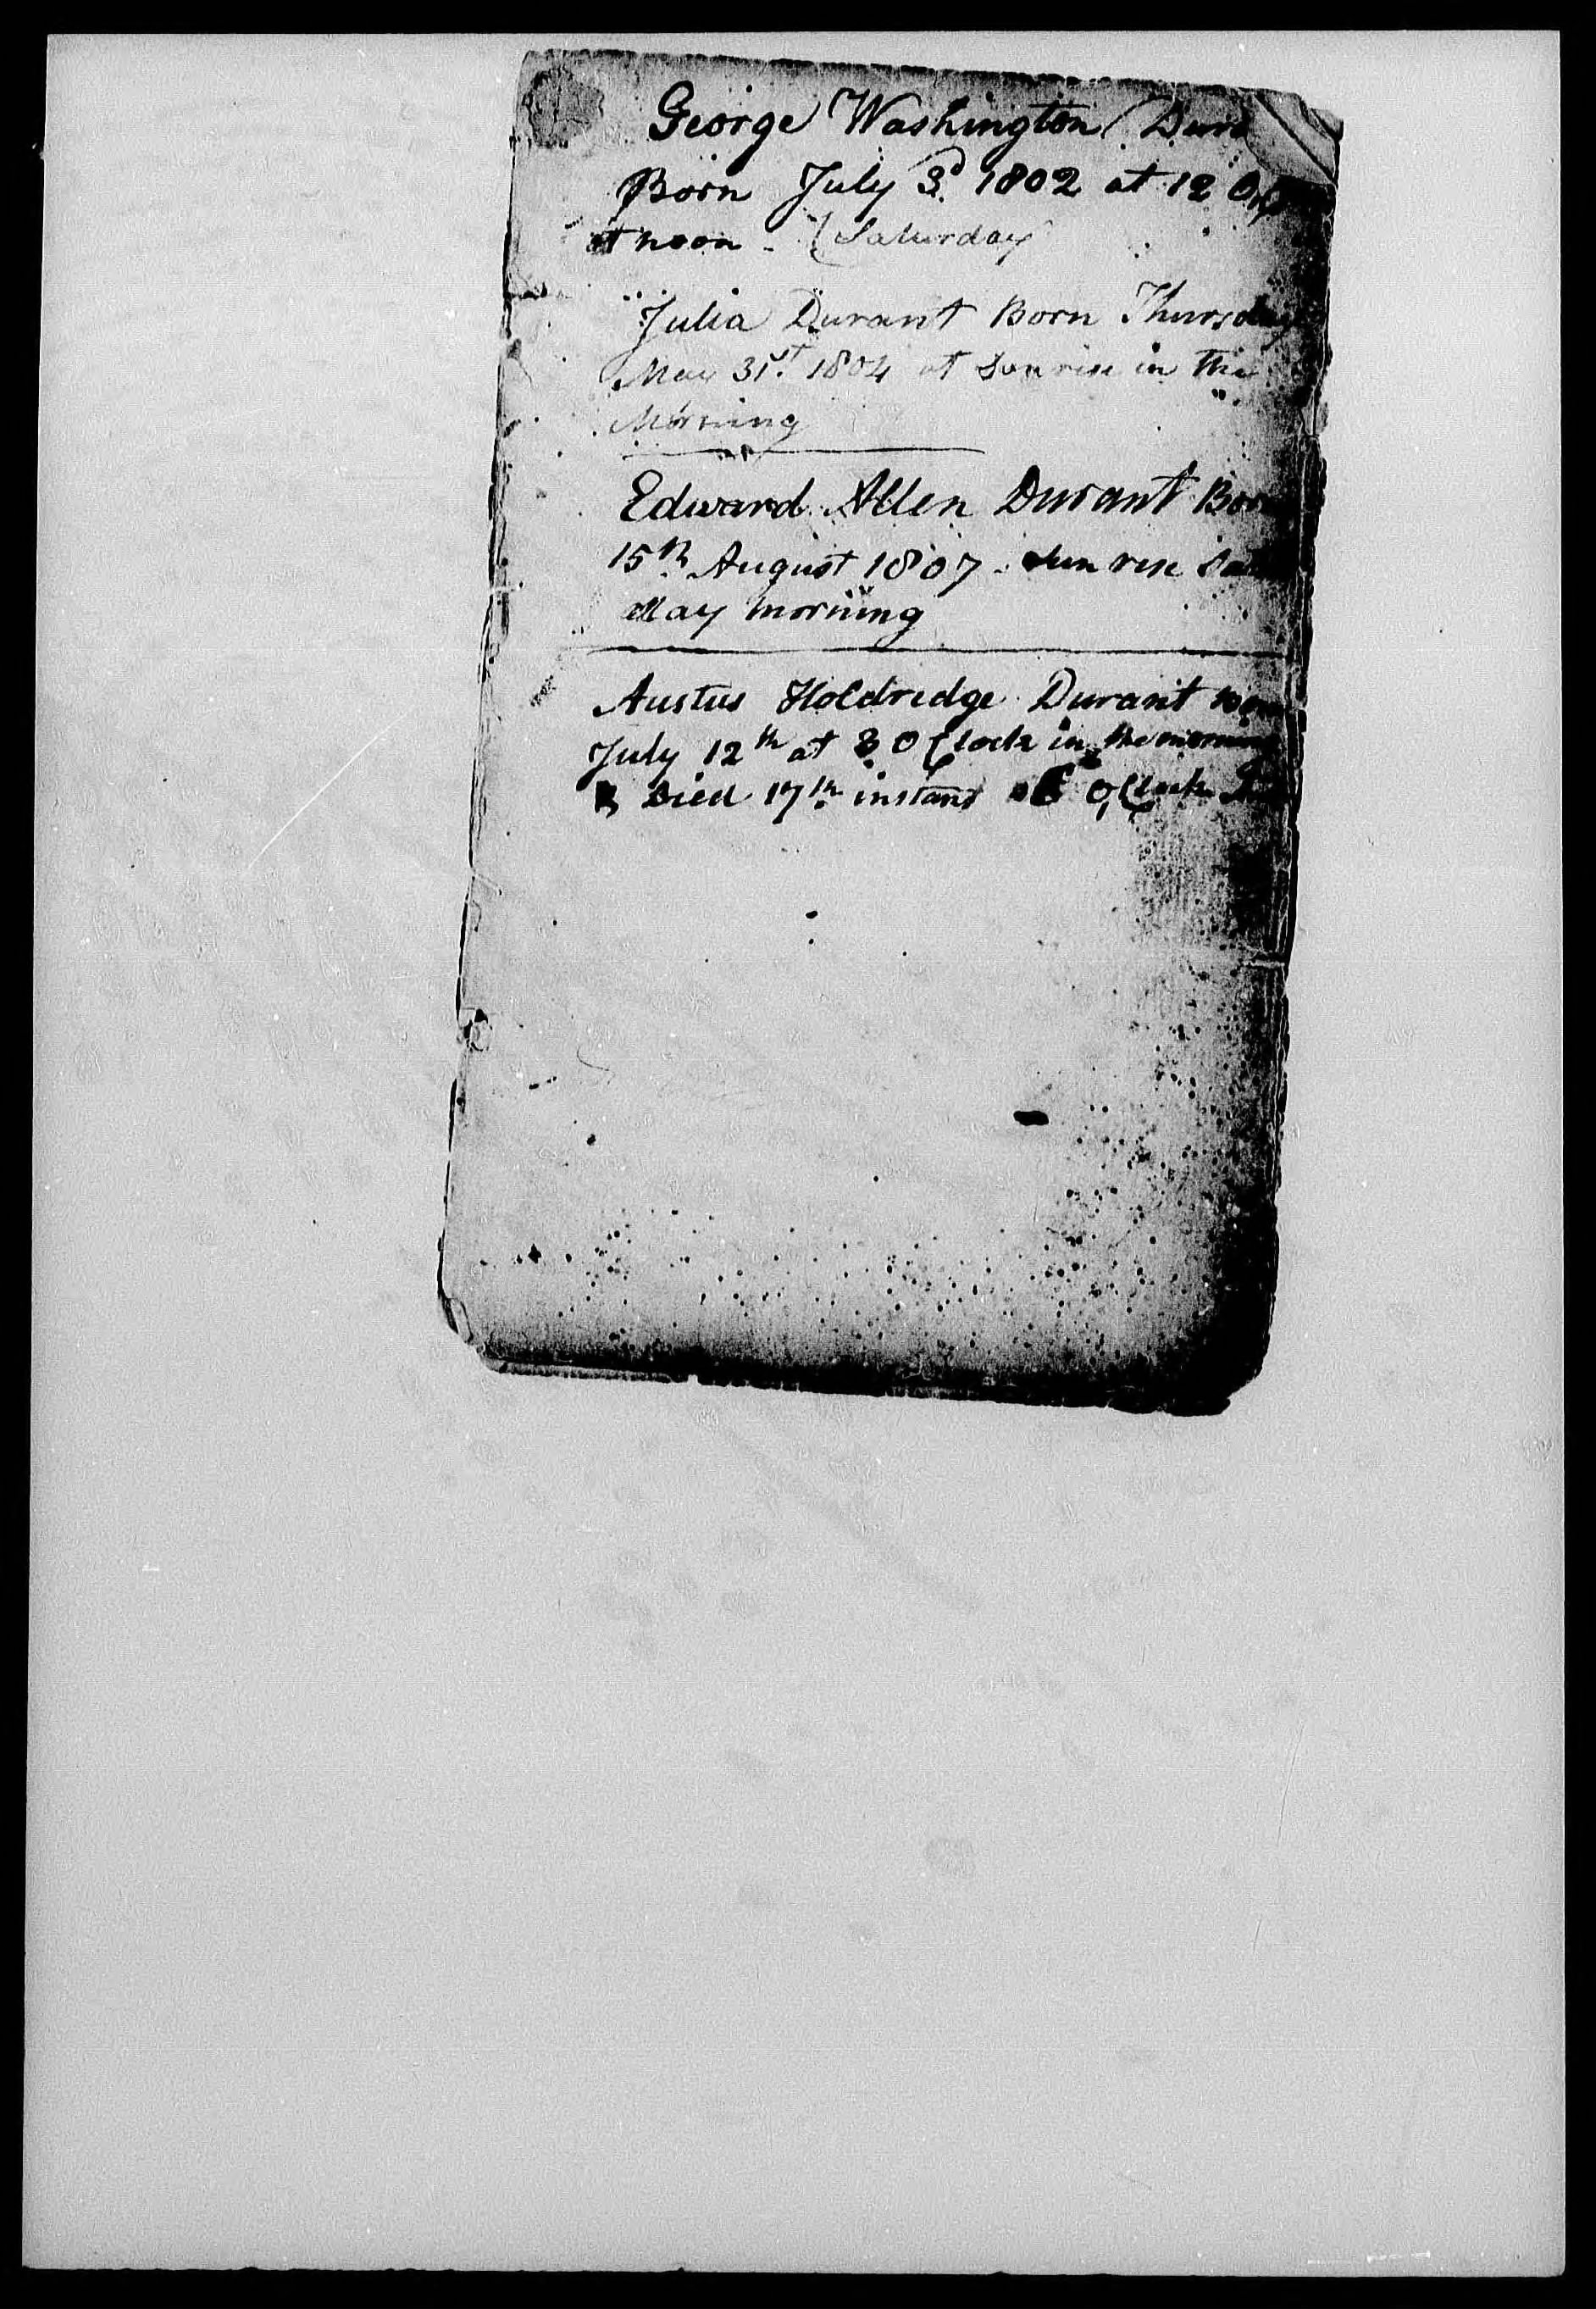 George Washington Dura
Born July 3d 1802 at 12 O
at noon - (Saturday
Julia Durant Born Thursday
May 31st 1804 at Sun rise in the
Morning
Edward Allen Durant Bor
15th August 1807 - Sun rise Sat
day morning
Austus Holdredge Durant Born
July 12th at 3 O Clock in the morning
& Died 17th instant 6 O,Clock